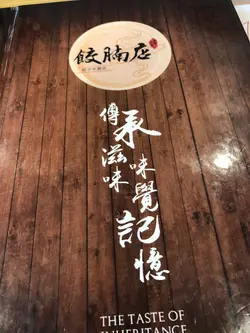 餃腩店
傳承滋味
味覺記憶
THE TASTE OF
INHERITANCE